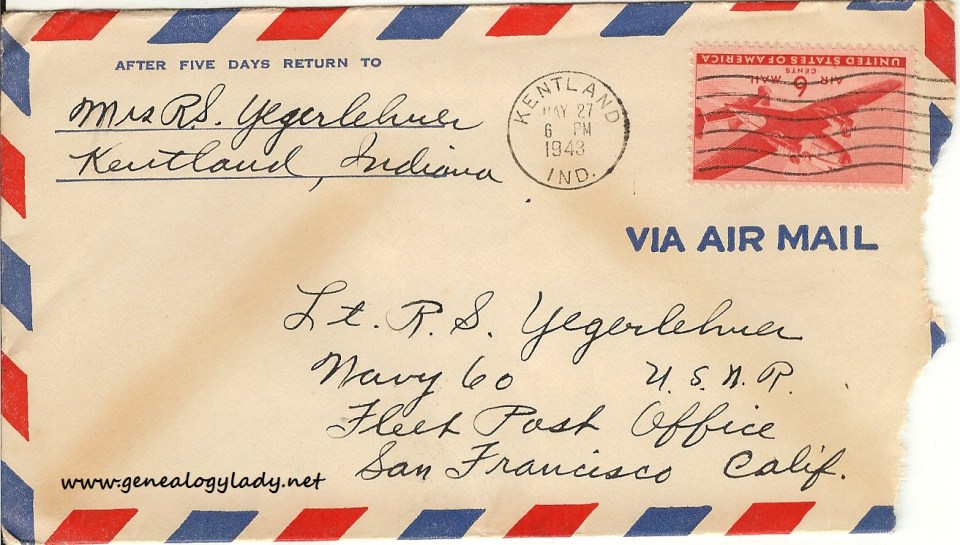 AFTER FIVE DAYS RETURN TO
Mrs R.S. Yegerlehner
Kentland, Indiana
KENTLAND
MAY 27
6 PM
1943
IND.
UNITED STATES OF AMERICA
AIR MAIL
6 CENTS
VIA AIR MAIL
Lt. R. S. Yegerlehner
Navy 60 U.S.N.R.
Fleet Post Office
San Francisco Calif.
www.genealogylady.net